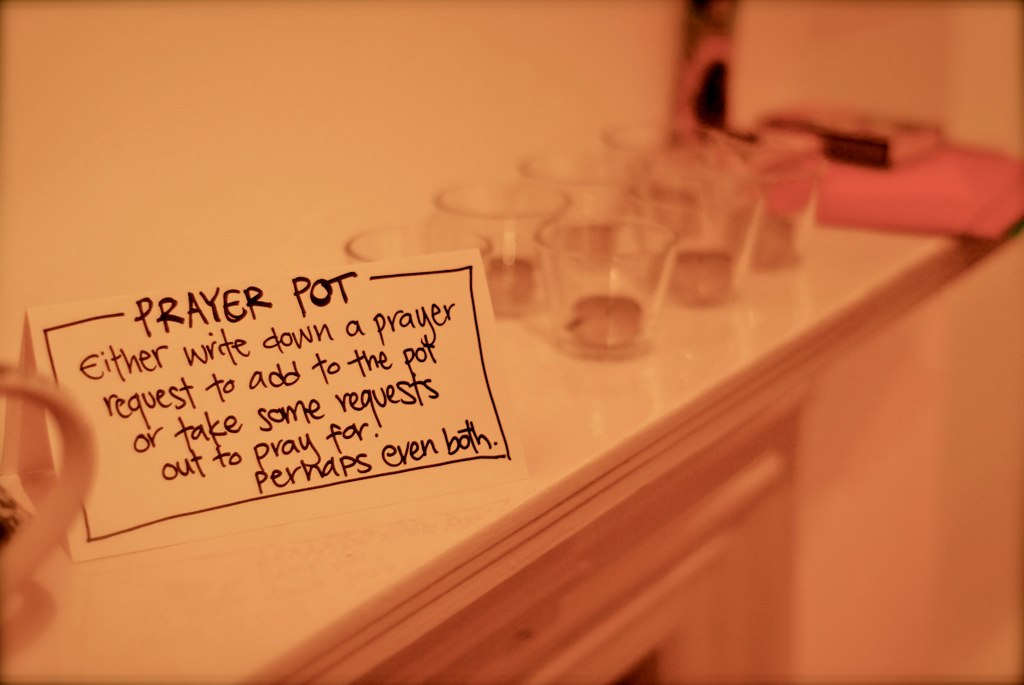 PRAYER POT
Either write down a prayer
request to add to the pot
or take some requests
out to pray for!
perhaps even both.